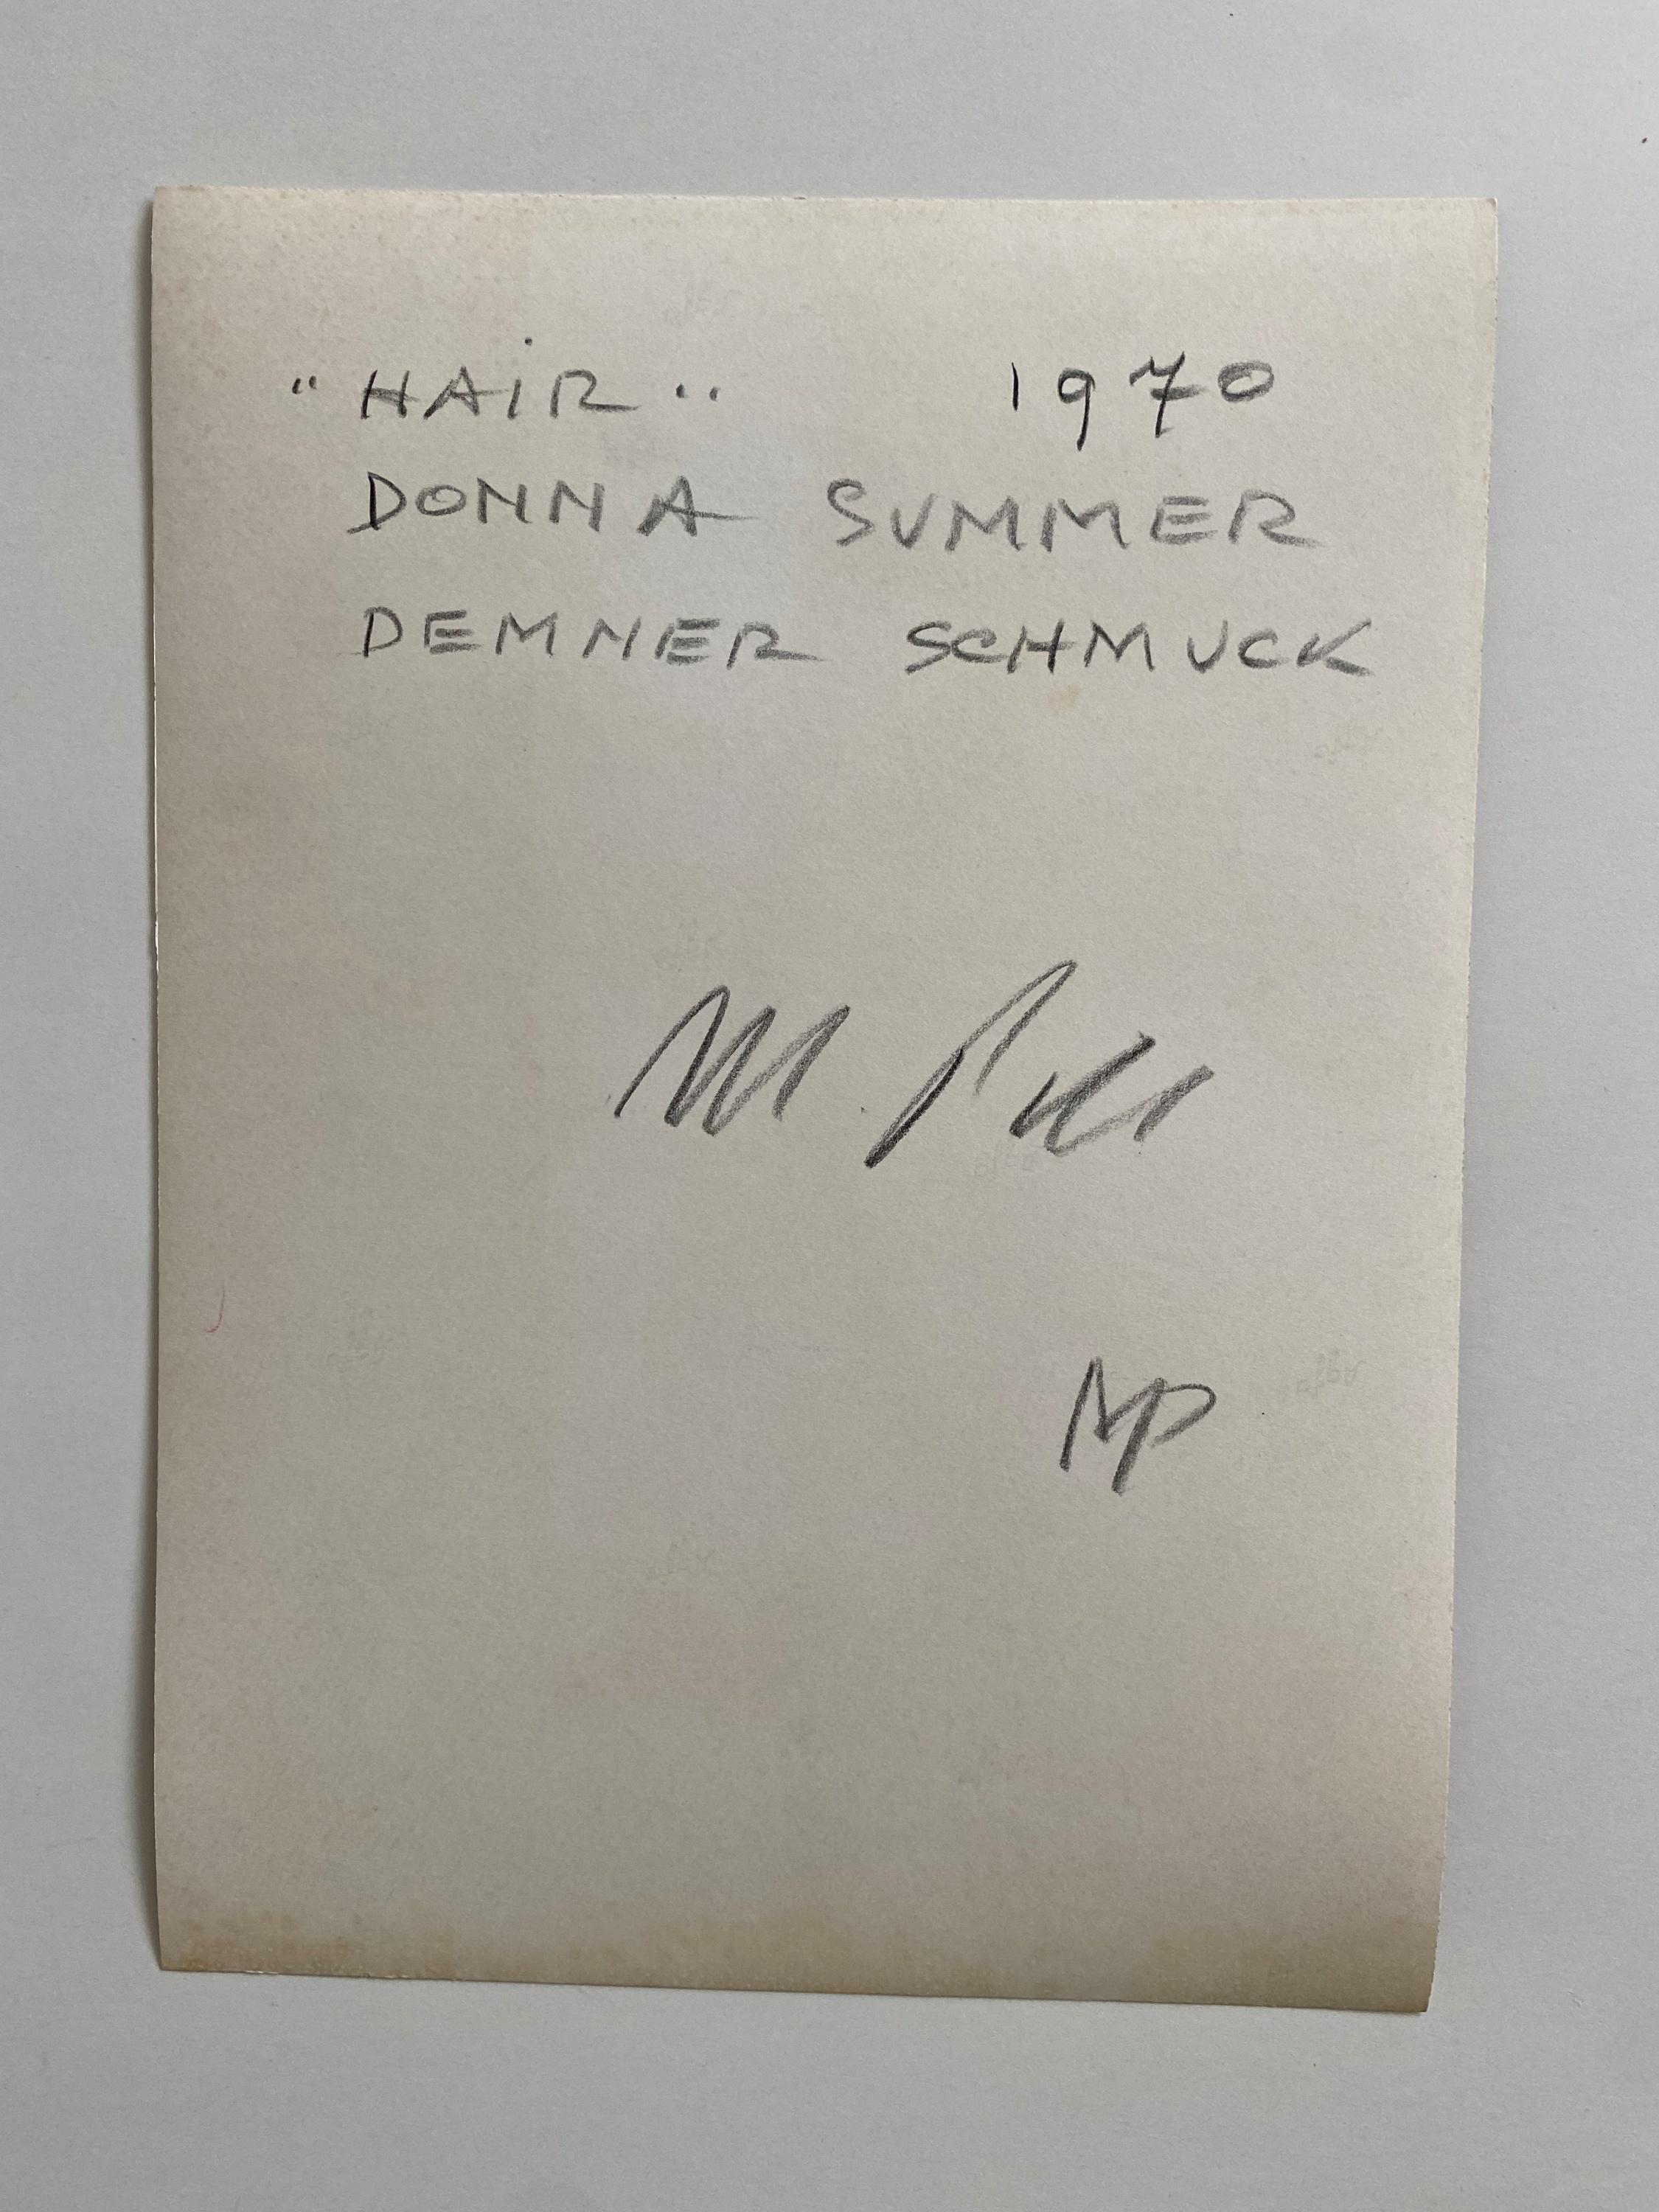 "HAiR" 1970
DONNA SUMMER
DEMNER SCHMUCK
AP